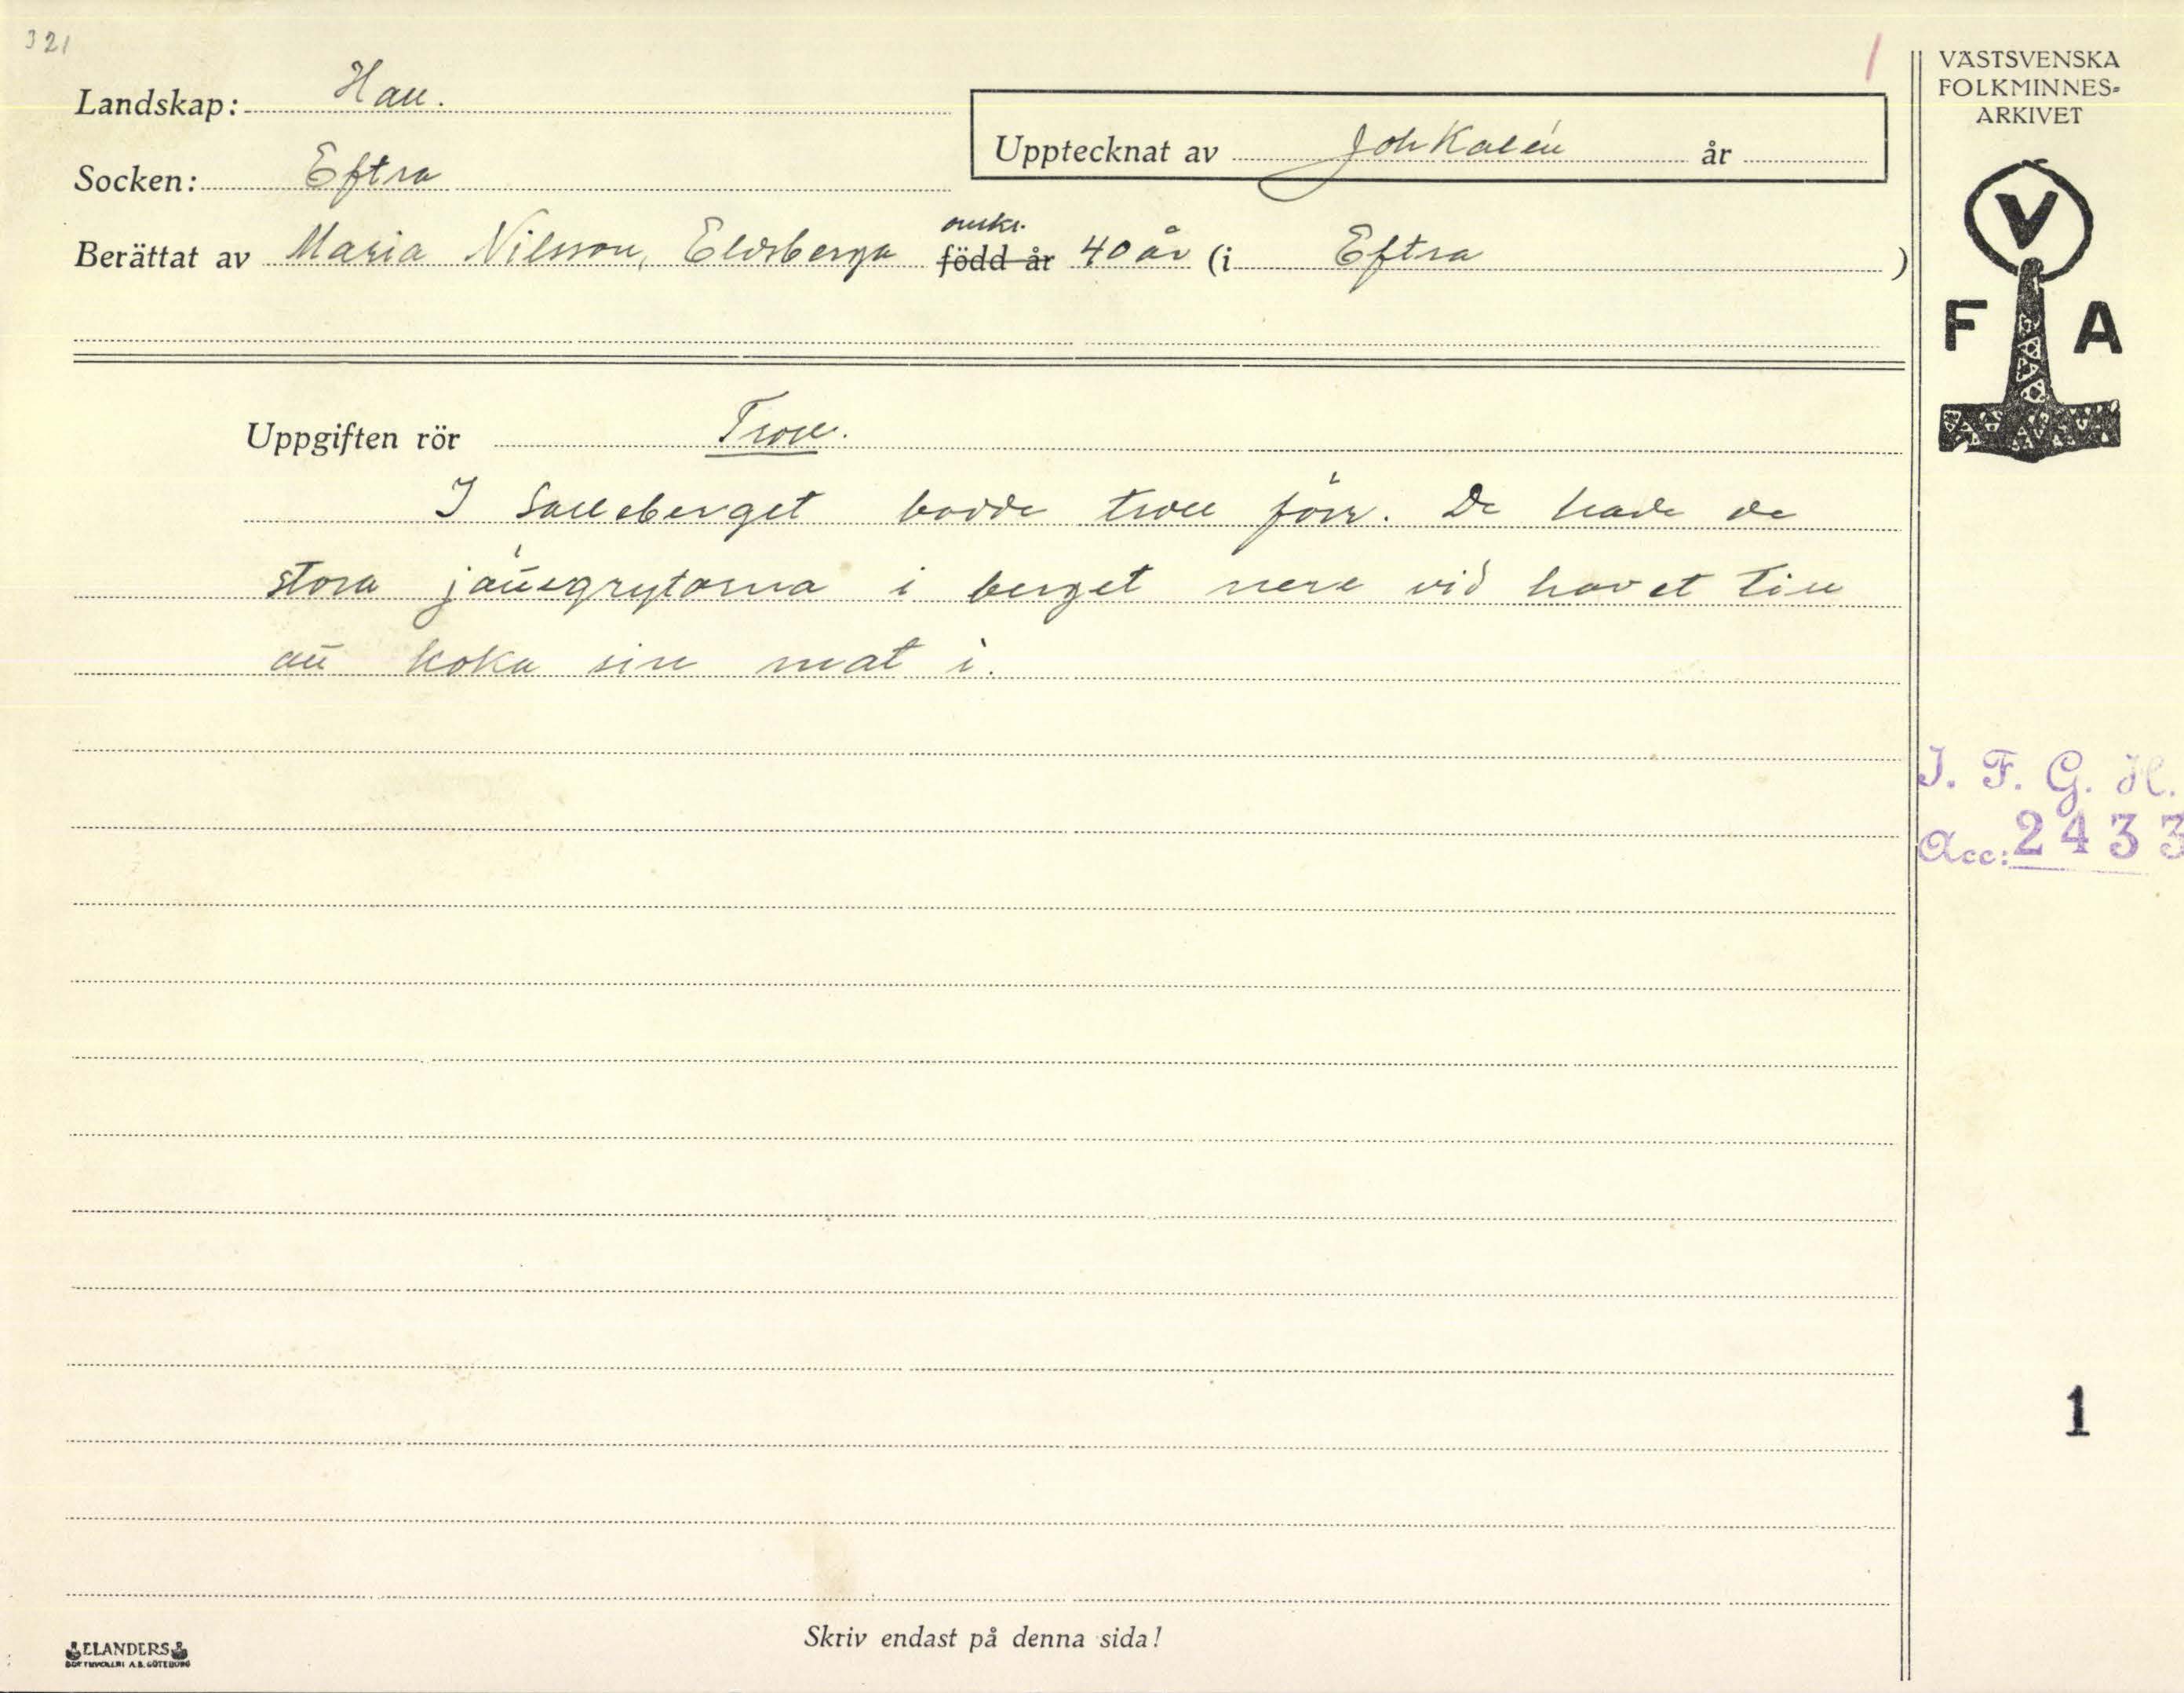 321
Landskap: Hall.
Socken: Eftra
Upptecknat av Joh Kalén år
Berättat av Maria Nilsson, Eldsberga omkr. född år 40 år (i Eftra )
Uppgiften rör Troll.
I Salleberget bodde troll förr. De hade de
stora jättegrytorna i berget nere vid havet till
att koka sin mat i.
Skriv endast på denna sida!
ELANDERS
VÄSTSVENSKA
FOLKMINNES-
ARKIVET
V
F A
I. F. G. H.
Acc: 2433
1